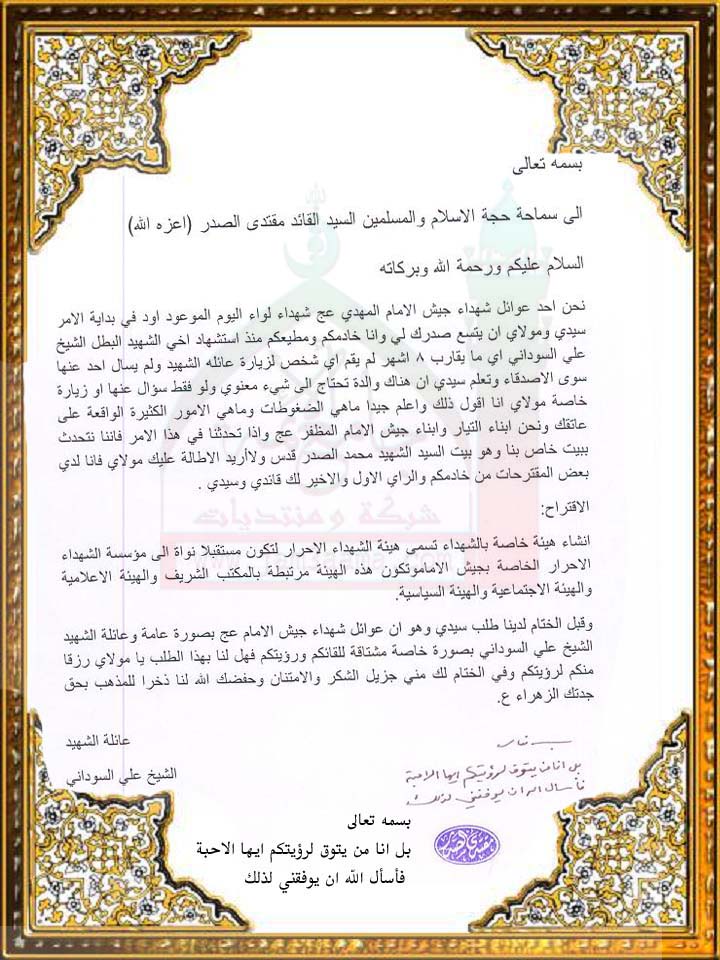 بسمه تعالى
الى سماحة حجة الاسلام والمسلمين السيد القائد مقتدى الصدر (اعزه الله)
السلام عليكم ورحمة الله وبركاته
نحن احد عوائل شهداء جيش الامام المهدي عج شهداء لواء اليوم الموعود اود في بداية الامر
سيدي ومولاي ان يتسع صدرك لي وانا خادمكم ومطيعكم منذ استشهاد اخي الشهيد البطل الشيخ
علي السوداني اي ما يقارب ٨ اشهر لم يقم اي شخص لزيارة عائله الشهيد ولم يسال احد عنها
سوى الاصدقاء وتعلم سيدي ان هناك والدة تحتاج الى شيء معنوي ولو فقط سؤال عنها او زيارة
خاصة مولاي انا اقول ذلك واعلم جيدا ماهي الضغوطات وماهي الامور الكثيرة الواقعة على
عاتقك ونحن ابناء التيار وابناء جيش الامام المظفر عج واذا تحدثنا في هذا الامر فاننا نتحدث
ببيت خاص بنا وهو بيت السيد الشهيد محمد الصدر قدس ولاأريد الاطالة عليك مولاي فانا لدي
بعض المقترحات من خادمكم والراي الاول والاخير لك قائدي وسيدي .
الاقتراح:
انشاء هيئة خاصة بالشهداء تسمى هيئة الشهداء الاحرار لتكون مستقبلا نواة الى مؤسسة الشهداء
الاحرار الخاصة بجيش الاماموتكون هذه الهيئة مرتبطة بالمكتب الشريف والهيئة الاعلامية
والهيئة الاجتماعية والهيئة السياسية.
وقبل الختام لدينا طلب سيدي وهو ان عوائل شهداء جيش الامام عج بصورة عامة وعائلة الشهيد
الشيخ علي السوداني بصورة خاصة مشتاقة للقائكم ورؤيتكم فهل لنا بهذا الطلب يا مولاي رزقا
منكم لرؤيتكم وفي الختام لك مني جزيل الشكر والامتنان وحفضك الله لنا ذخرا للمذهب بحق
جدتك الزهراء ع.
عائلة الشهيد
الشيخ علي السوداني
بسمه تعالى
بل انا من يتوق لرؤيتكم ايها الاحبة
فأسأل الله ان يوفقني لذلك
مقتدى الصدر
بسمه تعالى
بل انا من يتوق لرؤيتكم ايها الاحبة
فأسأل الله ان يوفقني لذلك
شبكة ومنتديات